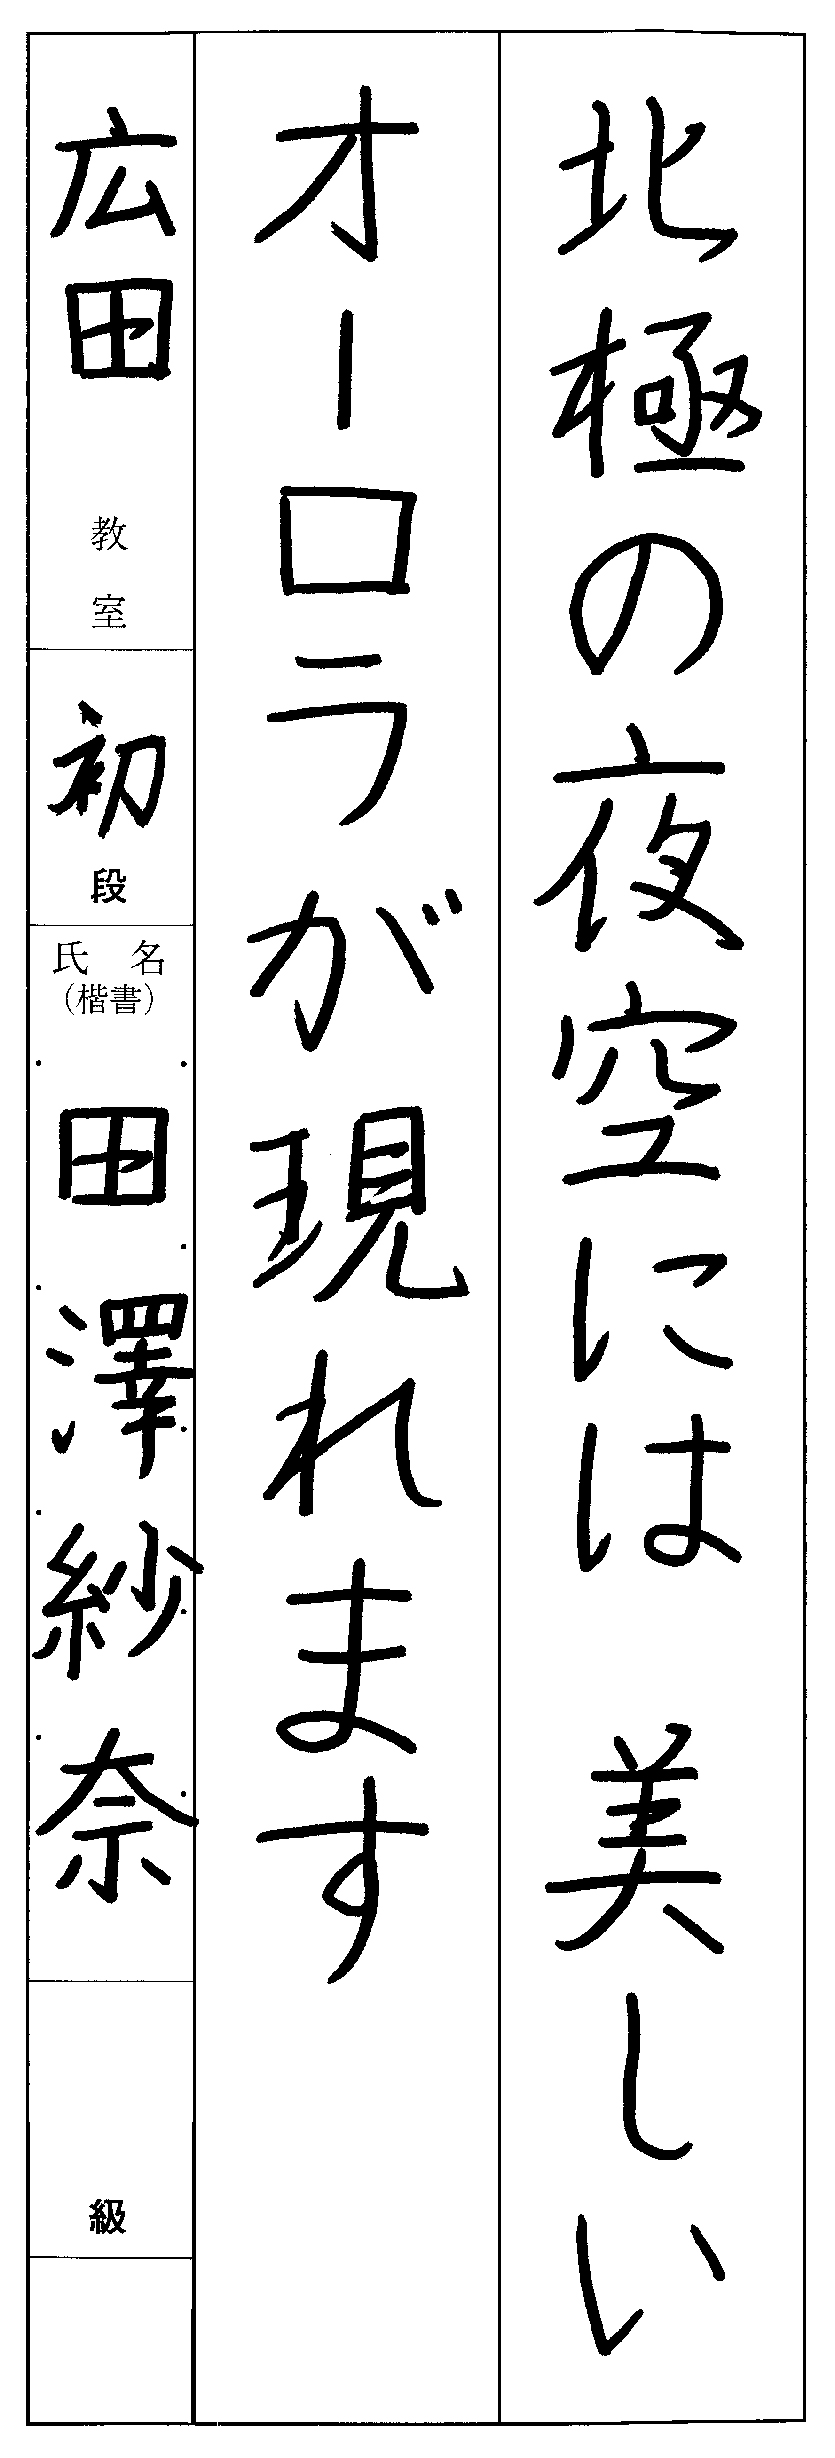 北極の夜空には　美しい
オーロラが現れます
広田教室
初段
氏名
（楷書）
田澤紗奈
級